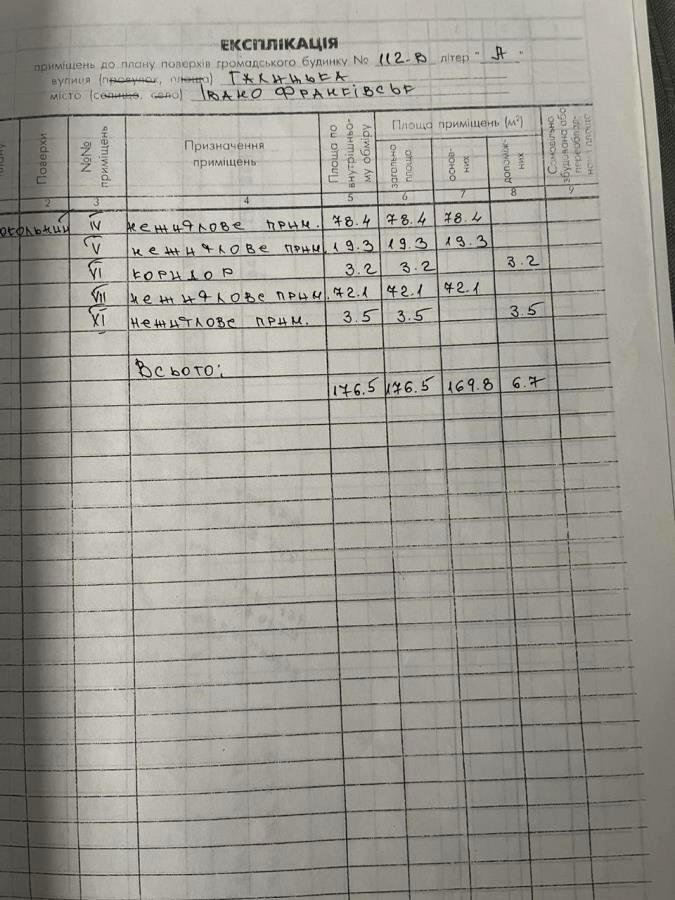 ЕКСПЛІКАЦІЯ
приміщень до плану поверхів громадського будинку № 112-В літер "А"
вулиця (провулок, площа) ГАЛИЦЬКА
місто (селище, село) ІВАНО ФРАНКІВСЬК
Поверхи №№ приміщень Призначення приміщень Площа по внутрішньому обміру Площа приміщень (м²) загальна площа основних допоміжних Самовільно збудована або
2 3 4 5 6 7 8 9
IV нежитлове прим. 78.4 78.4 78.4
V нежитлове прим. 19.3 19.3 19.3
VI коридор 3.2 3.2 3.2
VII нежитлове прим. 72.1 72.1 72.1
XI нежитлове прим. 3.5 3.5 3.5
Всього:
176.5 176.5 169.8 6.7